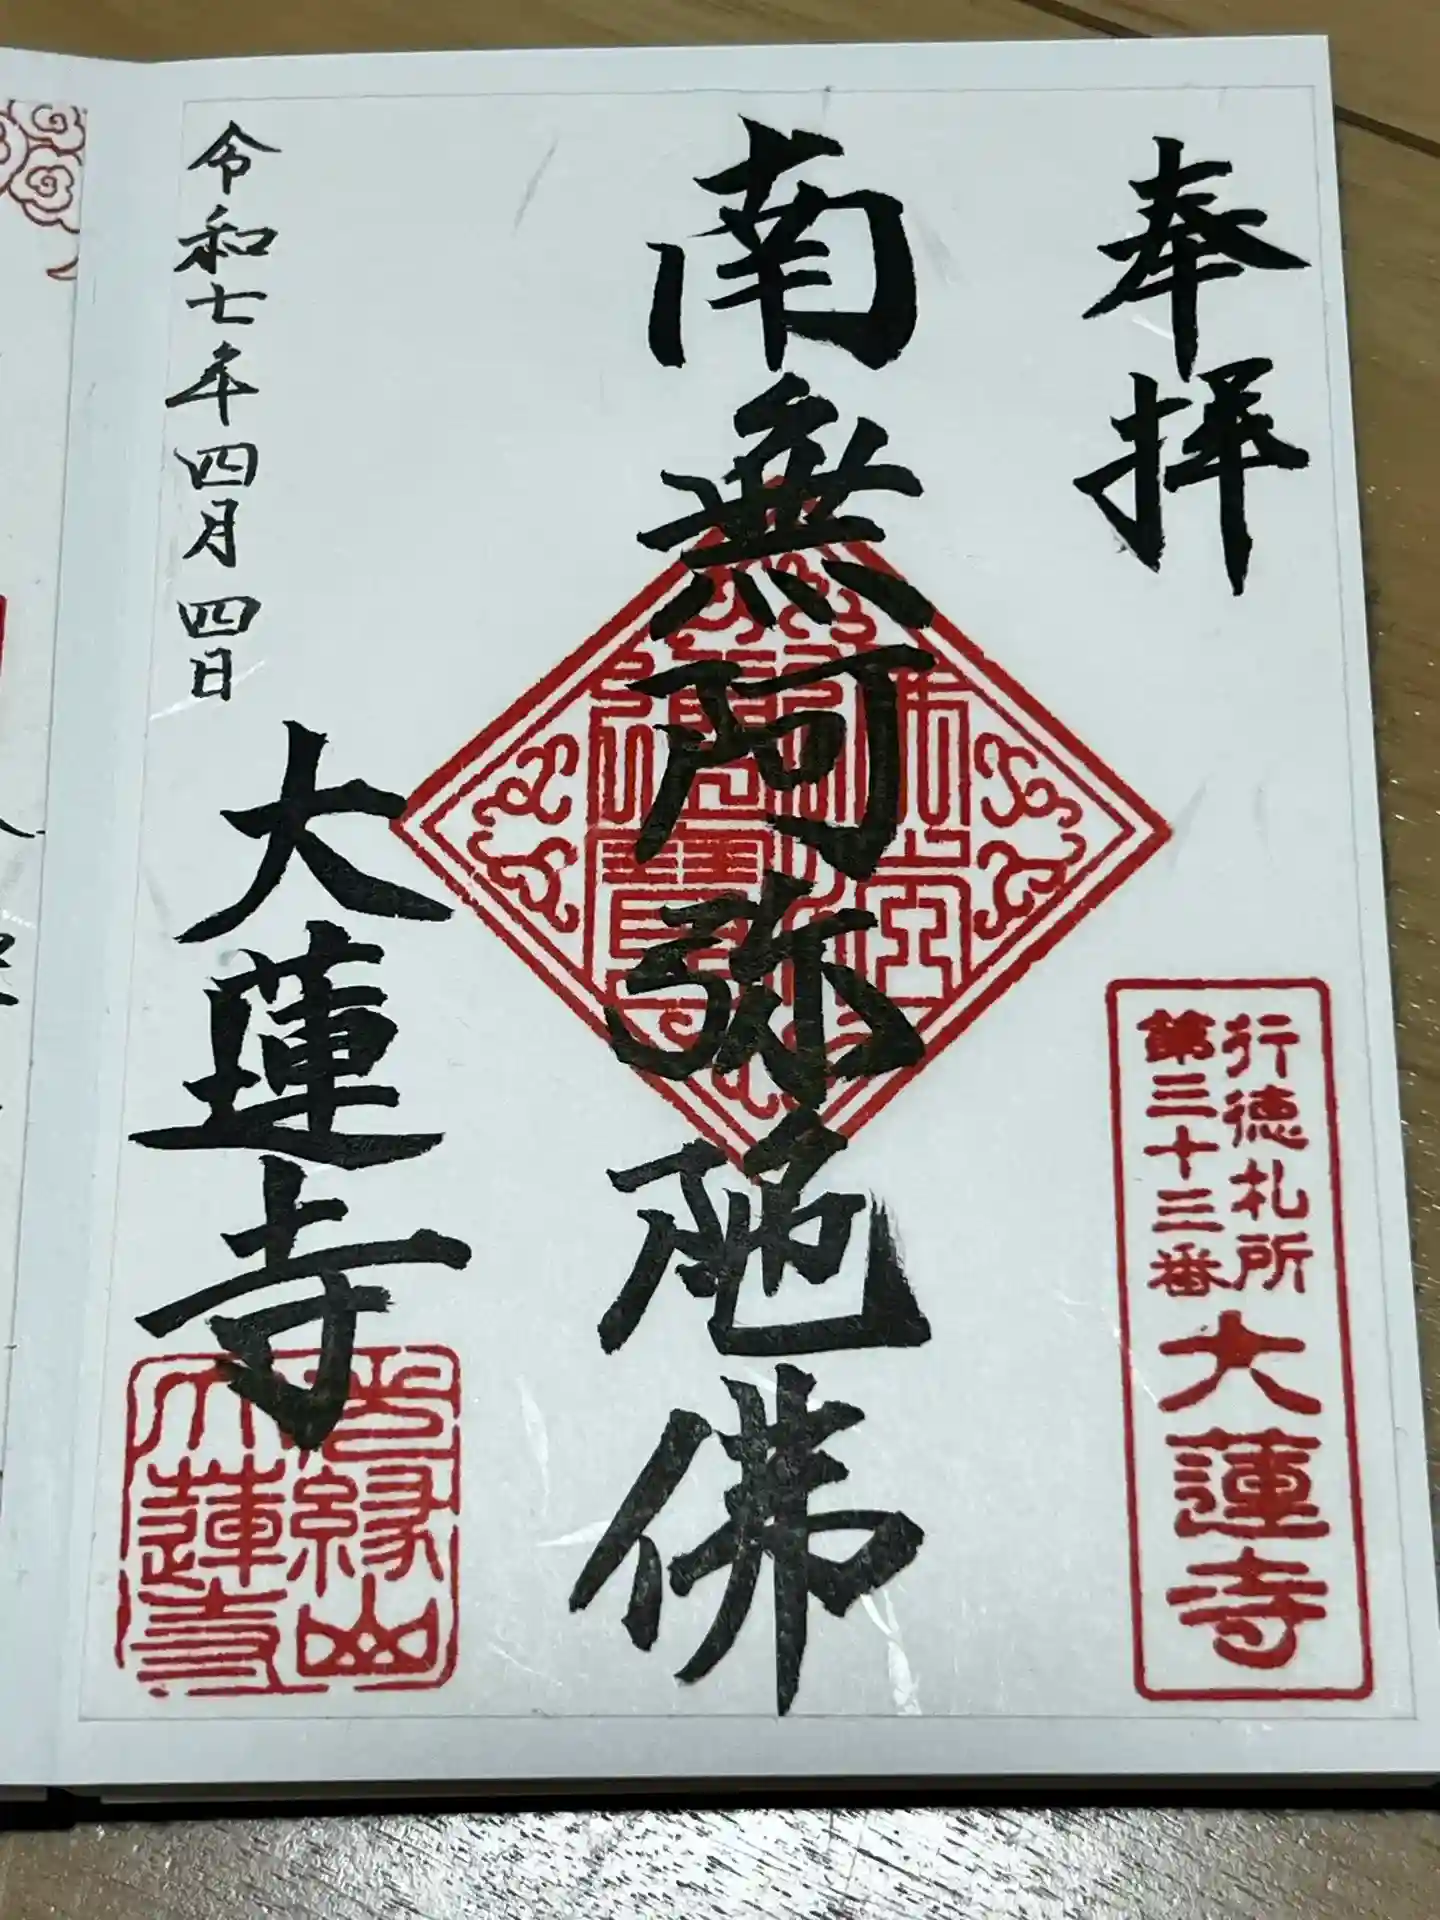 奉拝
行徳札所
第三十三番
大蓮寺
南無阿弥陀佛
令和七年四月四日
大蓮寺
光縁山
大蓮寺